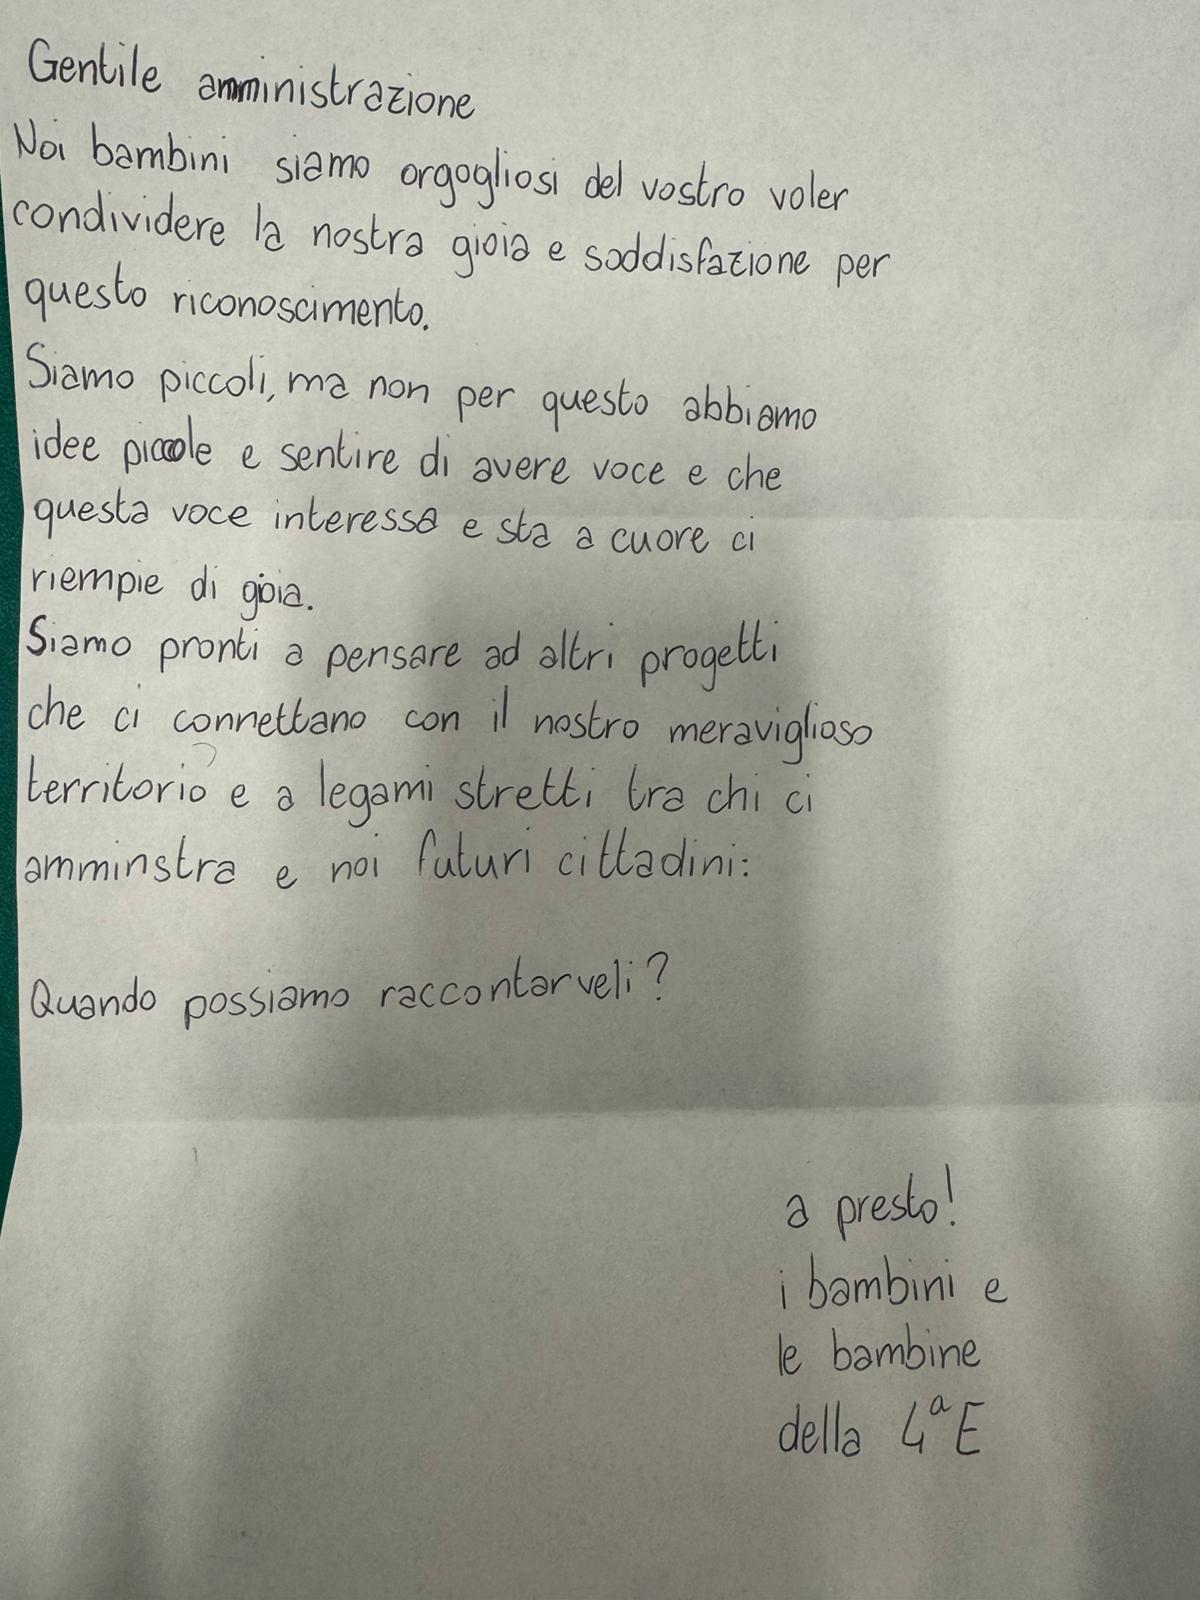 Gentile amministrazione
Noi bambini siamo orgogliosi del vostro voler
condividere la nostra gioia e soddisfazione per
questo riconoscimento.
Siamo piccoli, ma non per questo abbiamo
idee piccole e sentire di avere voce e che
questa voce interessa e sta a cuore ci
riempie di gioia.
Siamo pronti a pensare ad altri progetti
che ci connettano con il nostro meraviglioso
territorio e a legami stretti tra chi ci
amminstra e noi futuri cittadini:
Quando possiamo raccontarveli?
a presto!
i bambini e
le bambine
della 4ª E